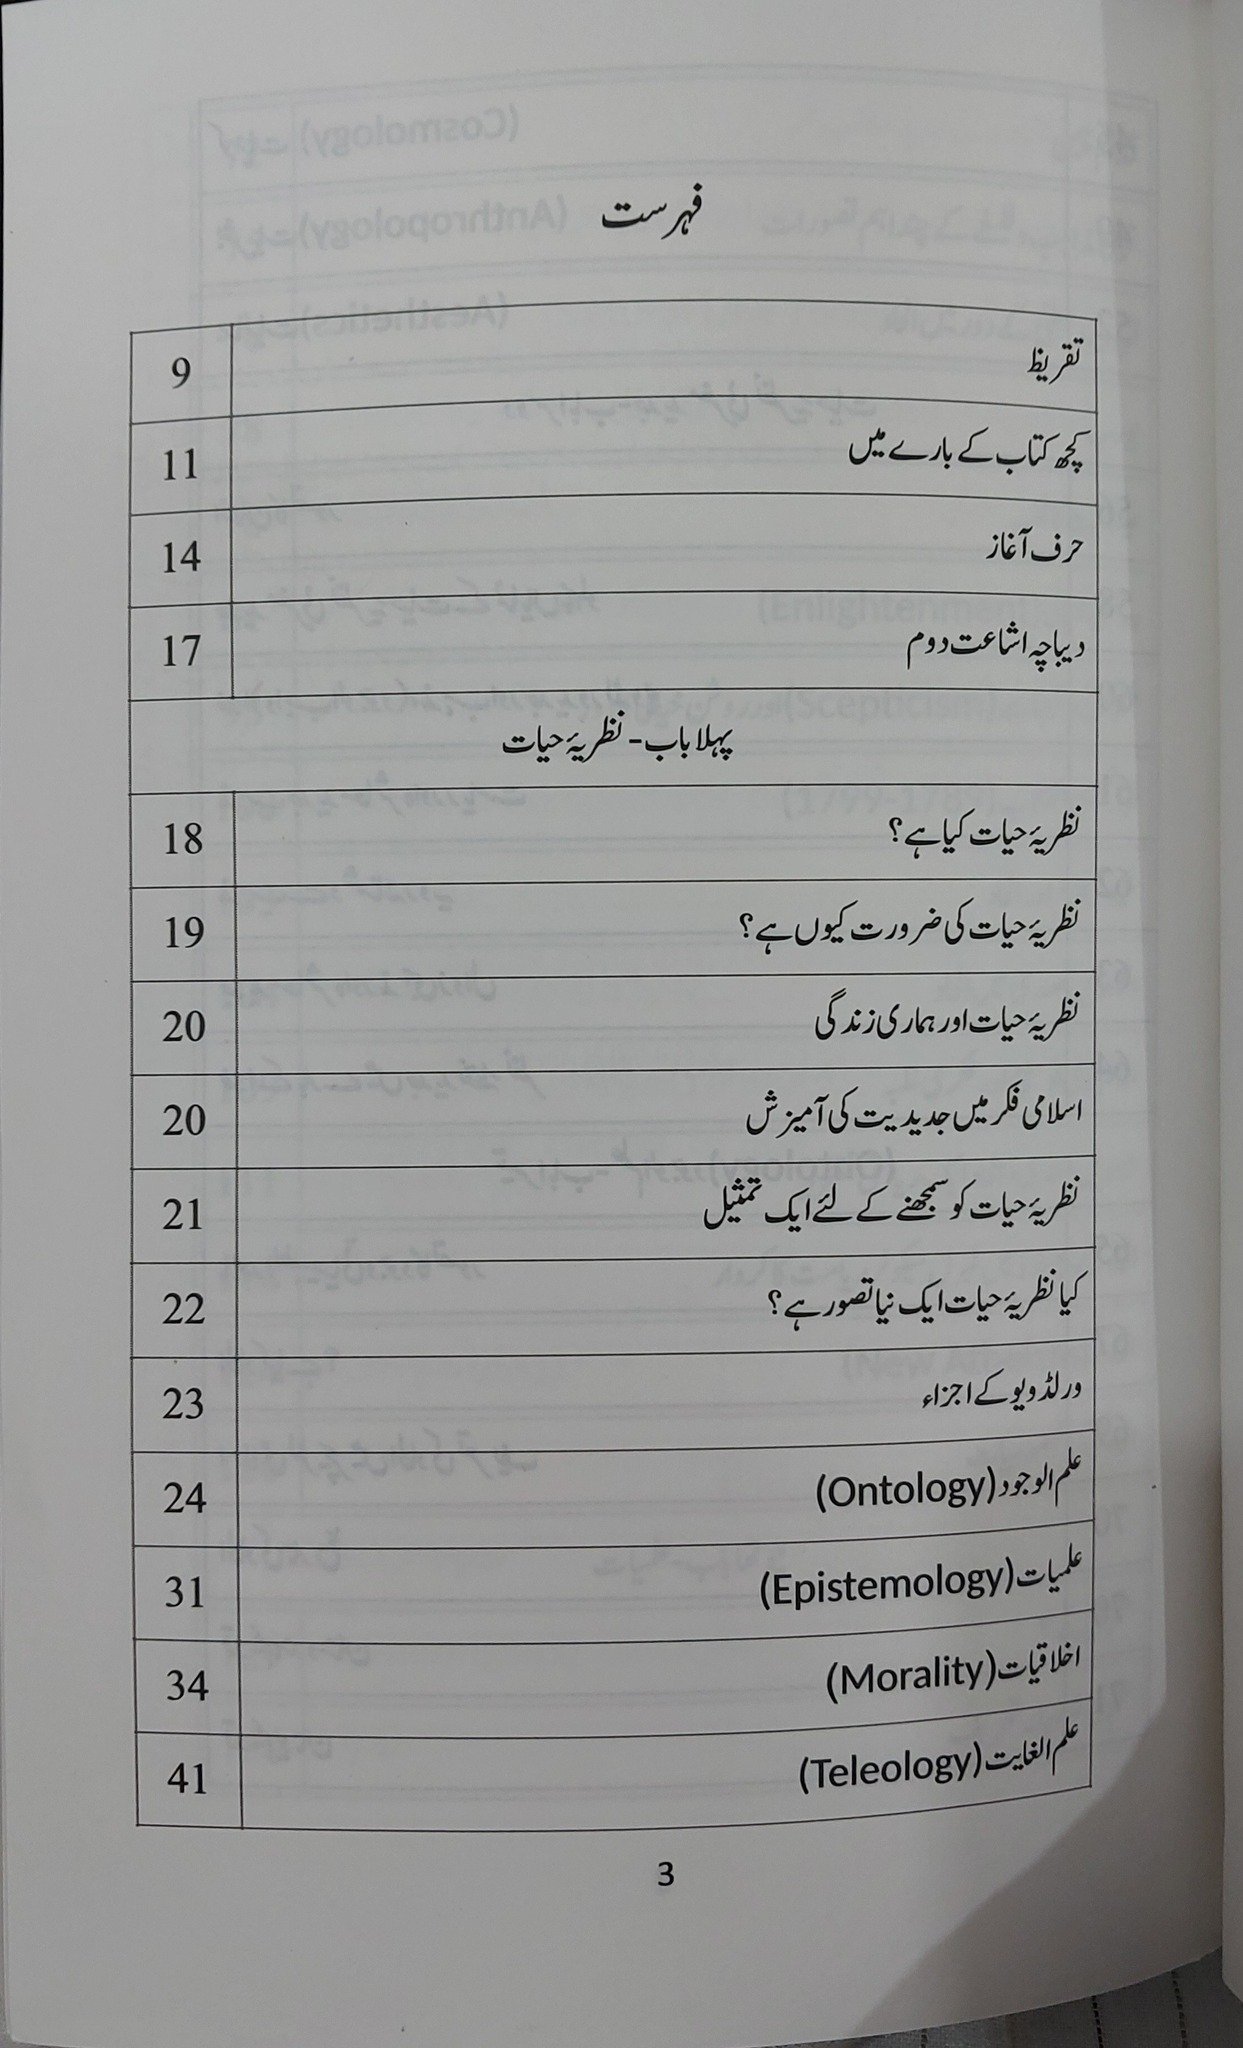 فہرست
تقریظ 9
کچھ کتاب کے بارے میں 11
حرف آغاز 14
دیباچہ اشاعت دوم 17
پہلا باب - نظریۂ حیات
نظریۂ حیات کیا ہے؟ 18
نظریۂ حیات کی ضرورت کیوں ہے؟ 19
نظریۂ حیات اور ہماری زندگی 20
اسلامی فکر میں جدیدیت کی آمیزش 20
نظریۂ حیات کو سمجھنے کے لئے ایک تمثیل 21
کیا نظریۂ حیات ایک نیا تصور ہے؟ 22
ورلڈ ویو کے اجزاء 23
علم الوجود (Ontology) 24
علمیات (Epistemology) 31
اخلاقیات (Morality) 34
علم الغایت (Teleology) 41
3